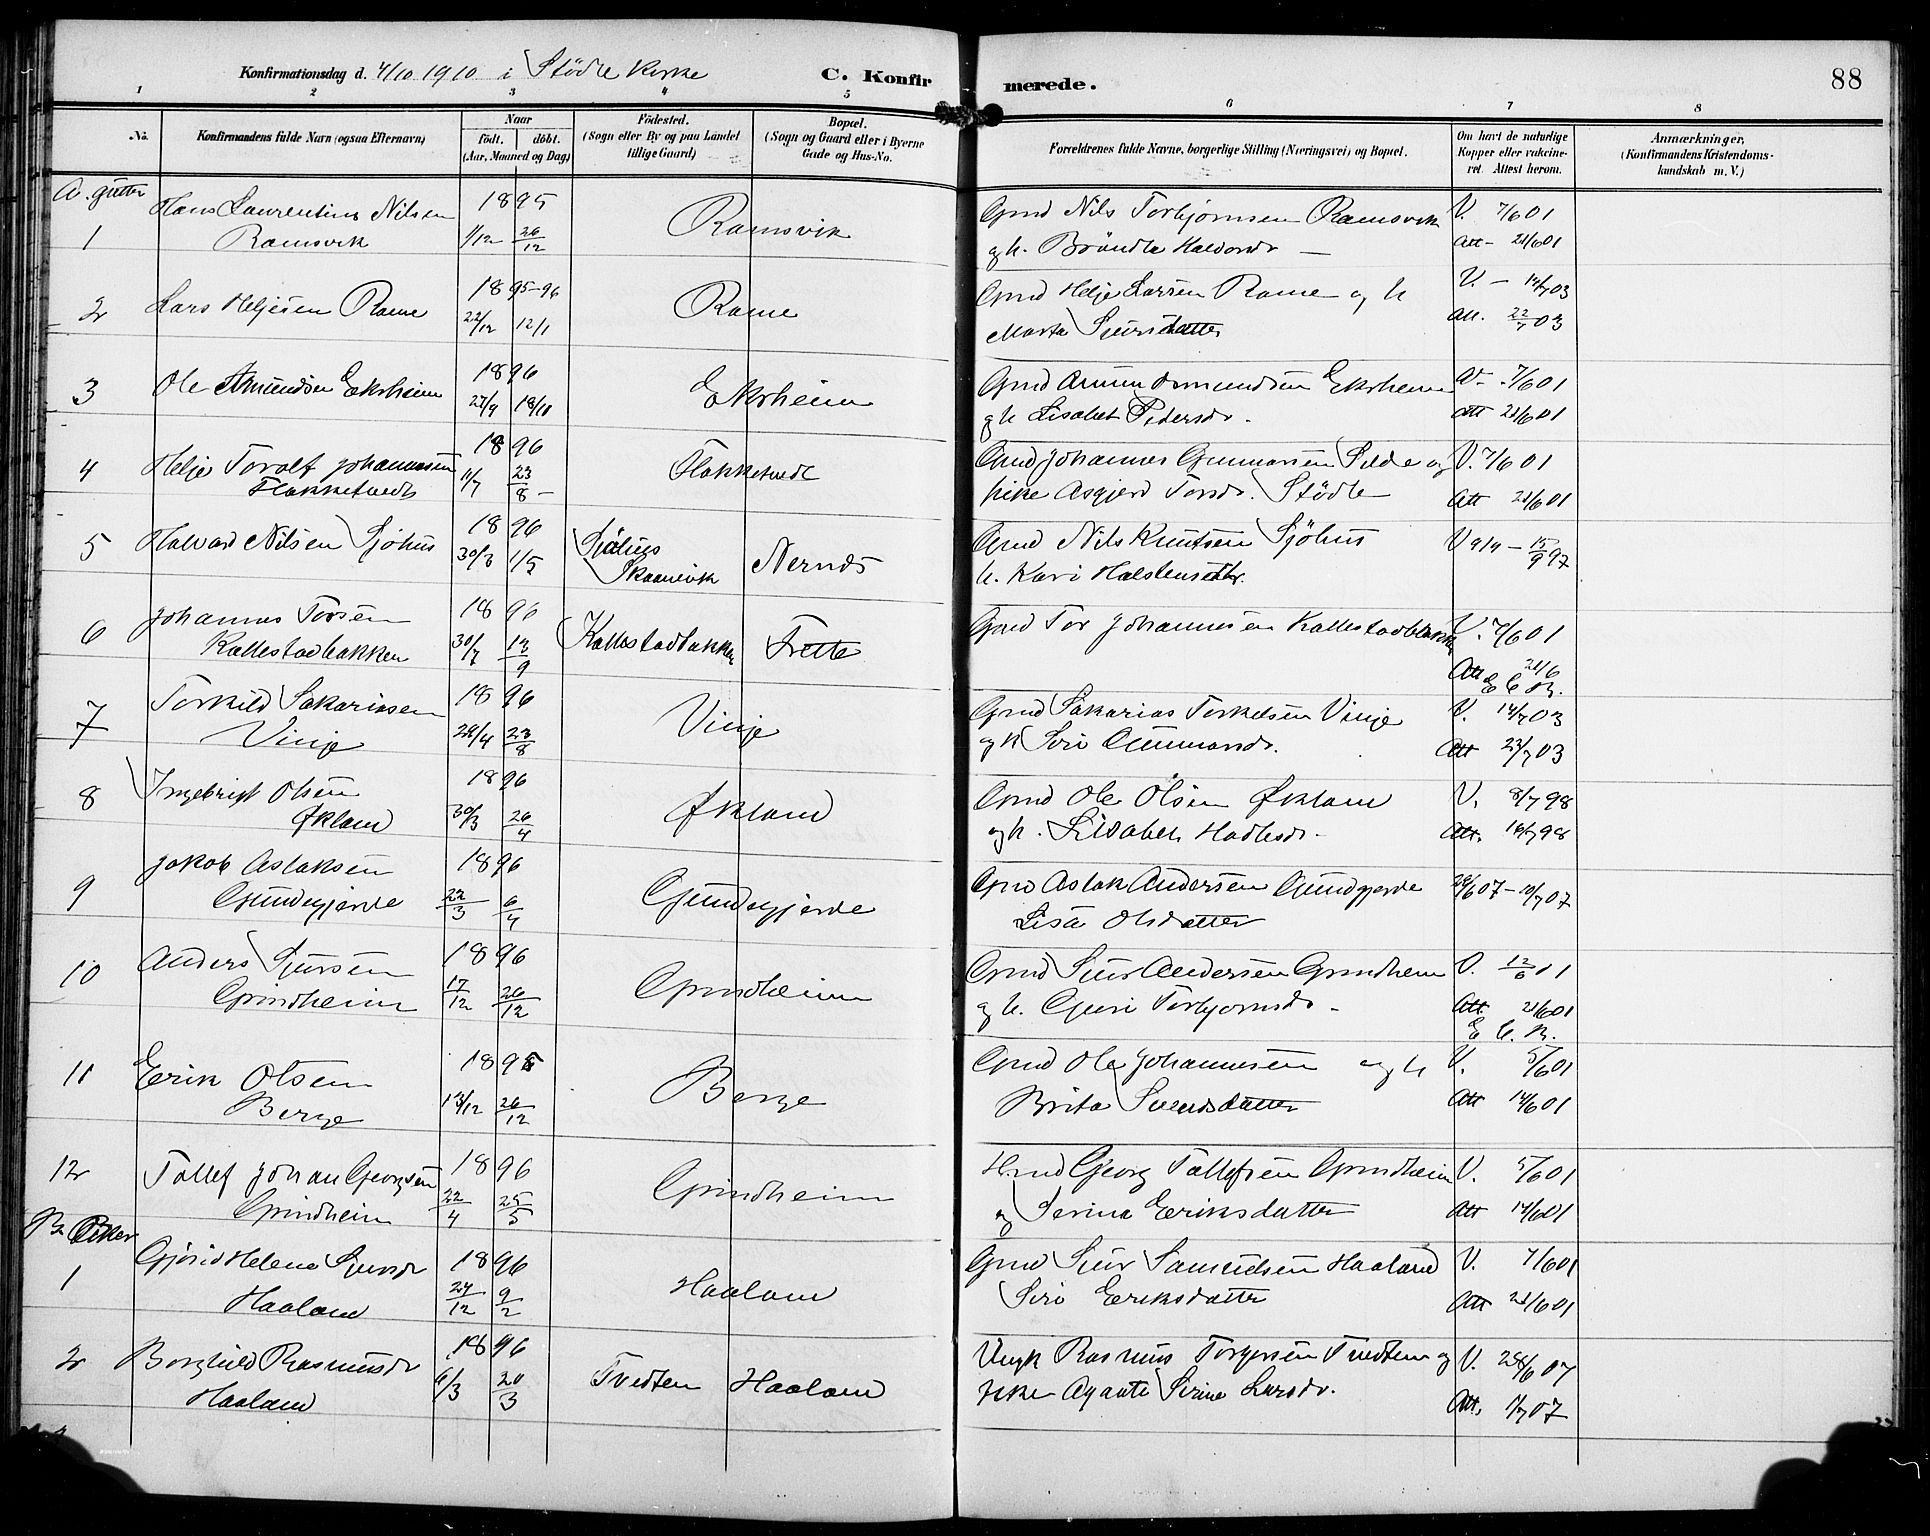 Konfirmationsdag d. 4/10 1910 i Stödle Kirke
C. Konfirmerede.
88
1 2 3 4 5 6 7 8
No.
Konfirmandens fulde Navn (ogsaa Efternavn)
Naar
Født. døbt.
(Aar, Maaned og Dag)
Födested.
(Sogn eller By og paa Landet
tillige Gaard)
Bopæl.
(Sogn og Gaard eller i Byerne
Gade og Hus-No.
Forældrenes fulde Navne, borgerlige Stilling (Næringsvei) og Bopæl.
Om havt de naturlige
Kopper eller vakcine-
ret. Attest herom.
Anmærkninger,
(Konfirmandens Kristendoms-
kundskab m. V.)
A. gutter
1 Hans Laurentius Nilsen 1895 Ramsvik Gmd Nils Torbjørnsen Ramsvik V. 7/6 01
Ramsvik 1/12 26/12 og h. Bröndla Halvorsdr — Att - 21/6 01
2 Lars Heljesen Rame 1895-96 Rame Gmd Helje Larsen Rame og h V. - 14/7 03
22/12 12/1 Marta Sjursdatter Att. 22/7 03
3 Ole Amundsen Ekrheim 1896 Ekrheim Gmd Amun Osmundsen Ekrheim V - 7/6 01
27/9 18/10 og h Lisabet Pedersdr. Att 21/6 01
4 Helje Toralf Johannessen 1896 Flokketvedt Gmd Johannes Gunnarsen Silde og V. 7/6 01
Flokketvedt 11/7 23/8 - pike Asgjerd Torsdr. Stödle Att 21/6 01
5 Halvard Nilsen Sjöhus 1896 Sjöhus Gmd Nils Knutsen Sjöhus V 9/9 - 15/9 97
30/3 1/5 Skaanevik Nernes h. Kari Halstensdtr.
6 Johannes Torsen 1896 Kallestadbakken Frette Gmd Tor Johannesen Kallestadbakken V. 7/6 01
Kallestadbakken 30/7 13/9 Att 21/6
E. C. M.
7 Torkild Sakariasen 1896 Vinje Gmd Sakarias Torkelsen Vinje V. 14/7 03
Vinje 28/4 23/8 og h Siri Gunnarsdr. Att 23/7 03
8 Ingebrigt Olsen 1896 Økland Gmd Ole Olsen Økland V. 8/7 98
Økland 30/3 26/4 og h. Lisabet Hadlesdr. Att. 16/7 98
9 Jakob Aslaksen 1896 Gjundegjerde Gmd Aslak Andersen Gjundgjerde 28/6 07 - 10/7 07
Gjundegjerde 22/3 6/4 Lisa Olsdatter
10 Anders Sjursen 1896 Grindheim Gmd Sjur Andersen Grindheim V. 12/6 01
Grindheim 17/12 26/12 og h. Guri Torbjornsdr - Att 21/6 01
E. C. M.
11 Erik Olsen 1895 Berge Gmd Ole Johannesen og h V. 5/6 01
Berge 13/12 26/12 Brita Svendsdatter Att 14/6 01
12 Tollef Johan Georgsen 1896 Grindheim Hmd Georg Tollefsen Grindheim V. 5/6 01
Grindheim 22/4 25/5 og Serina Eriksdatter Att 14/6 01
B. Piker
1 Gjörid Helene Sjursdr 1896 Haaland Gmd Sjur Samuelsen Haaland V. 7/6 01
Haaland 27/12 9/2 Siri Eriksdatter Att 21/6 01
2 Borghild Rasmusdr 1896 Tvedten Haaland Ungk Rasmus Torgersen Tvedten og V. 28/6 07
Haaland 6/3 20/3 pike Agaate Serine Larsdr. Att. 1/7 07